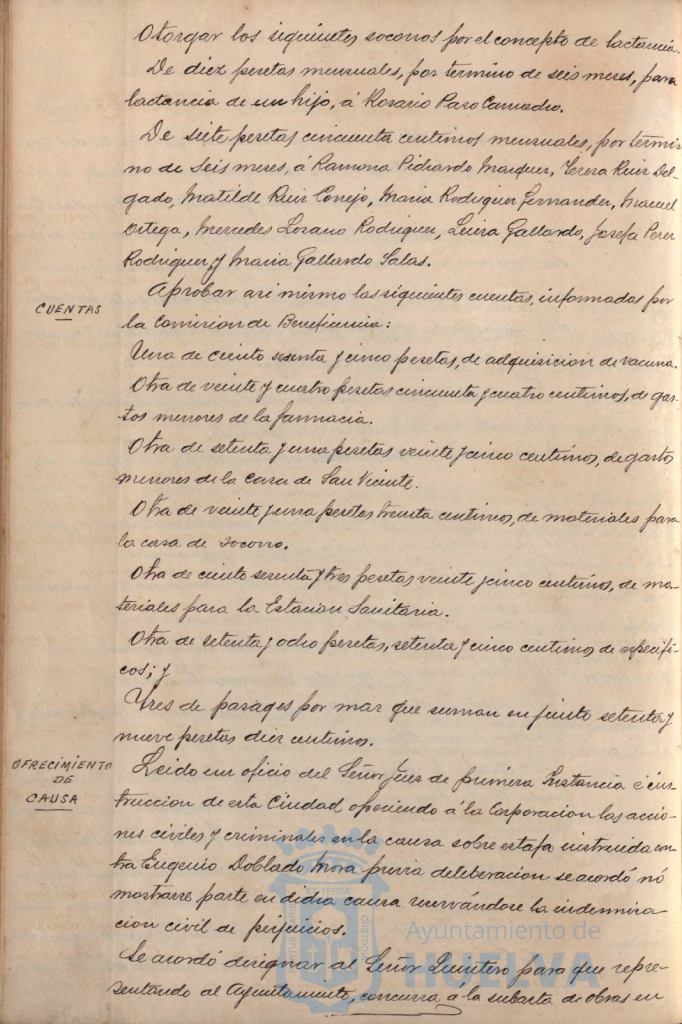 Otorgar los siguientes socorros por el concepto de lactancia.
De diez pesetas mensuales, por termino de seis meses, para
lactancia de un hijo, á Rosario Paso Camacho.
De siete pesetas cincuenta centimos mensuales, por termi-
no de seis meses, á Ramona Pichardo Marquez, Teresa Ruiz Del-
gado, Matilde Ruiz Conejo, Maria Rodriguez Fernandez, Manuel
Ortega, Mercedes Lozano Rodriguez, Luisa Gallardo, Josefa Perez
Rodriguez y Maria Gallardo Salas.
CUENTAS
Aprobar asi mismo las siguientes cuentas, informadas por
la Comision de Beneficencia:
Una de ciento sesenta y cinco pesetas, de adquisicion de vacuna.
Otra de veinte y cuatro pesetas cincuenta y cuatro centimos, de gas-
tos menores de la farmacia.
Otra de setenta y una pesetas veinte y cinco centimos, de gastos
menores de la Casa de San Vicente.
Otra de veinte y una pesetas treinta centimos, de materiales para
la casa de socorro.
Otra de ciento sesenta y tres pesetas veinte y cinco centimos, de ma-
teriales para la Estacion Sanitaria.
Otra de setenta y ocho pesetas, setenta y cinco centimos de especifi-
cos; y
Tres de pasages por mar que suman en junto setenta y
nueve pesetas diez centimos.
OFRECIMIENTO
DE
CAUSA
Leido un oficio del Señor Juez de primera Instancia é ins-
truccion de esta Ciudad ofreciendo á la Corporacion las accio-
nes civiles y criminales en la causa sobre estafa instruida con-
tra Eugenio Doblado Mora previa deliberacion se acordó nó
mostrarse parte en dicha causa reservándose la indemniza-
cion civil de perjuicios.
Se acordó designar al Señor Quintero para que repre-
sentando al Ayuntamiento, concurra a la subasta de obras en
Ayuntamiento de
HUELVA